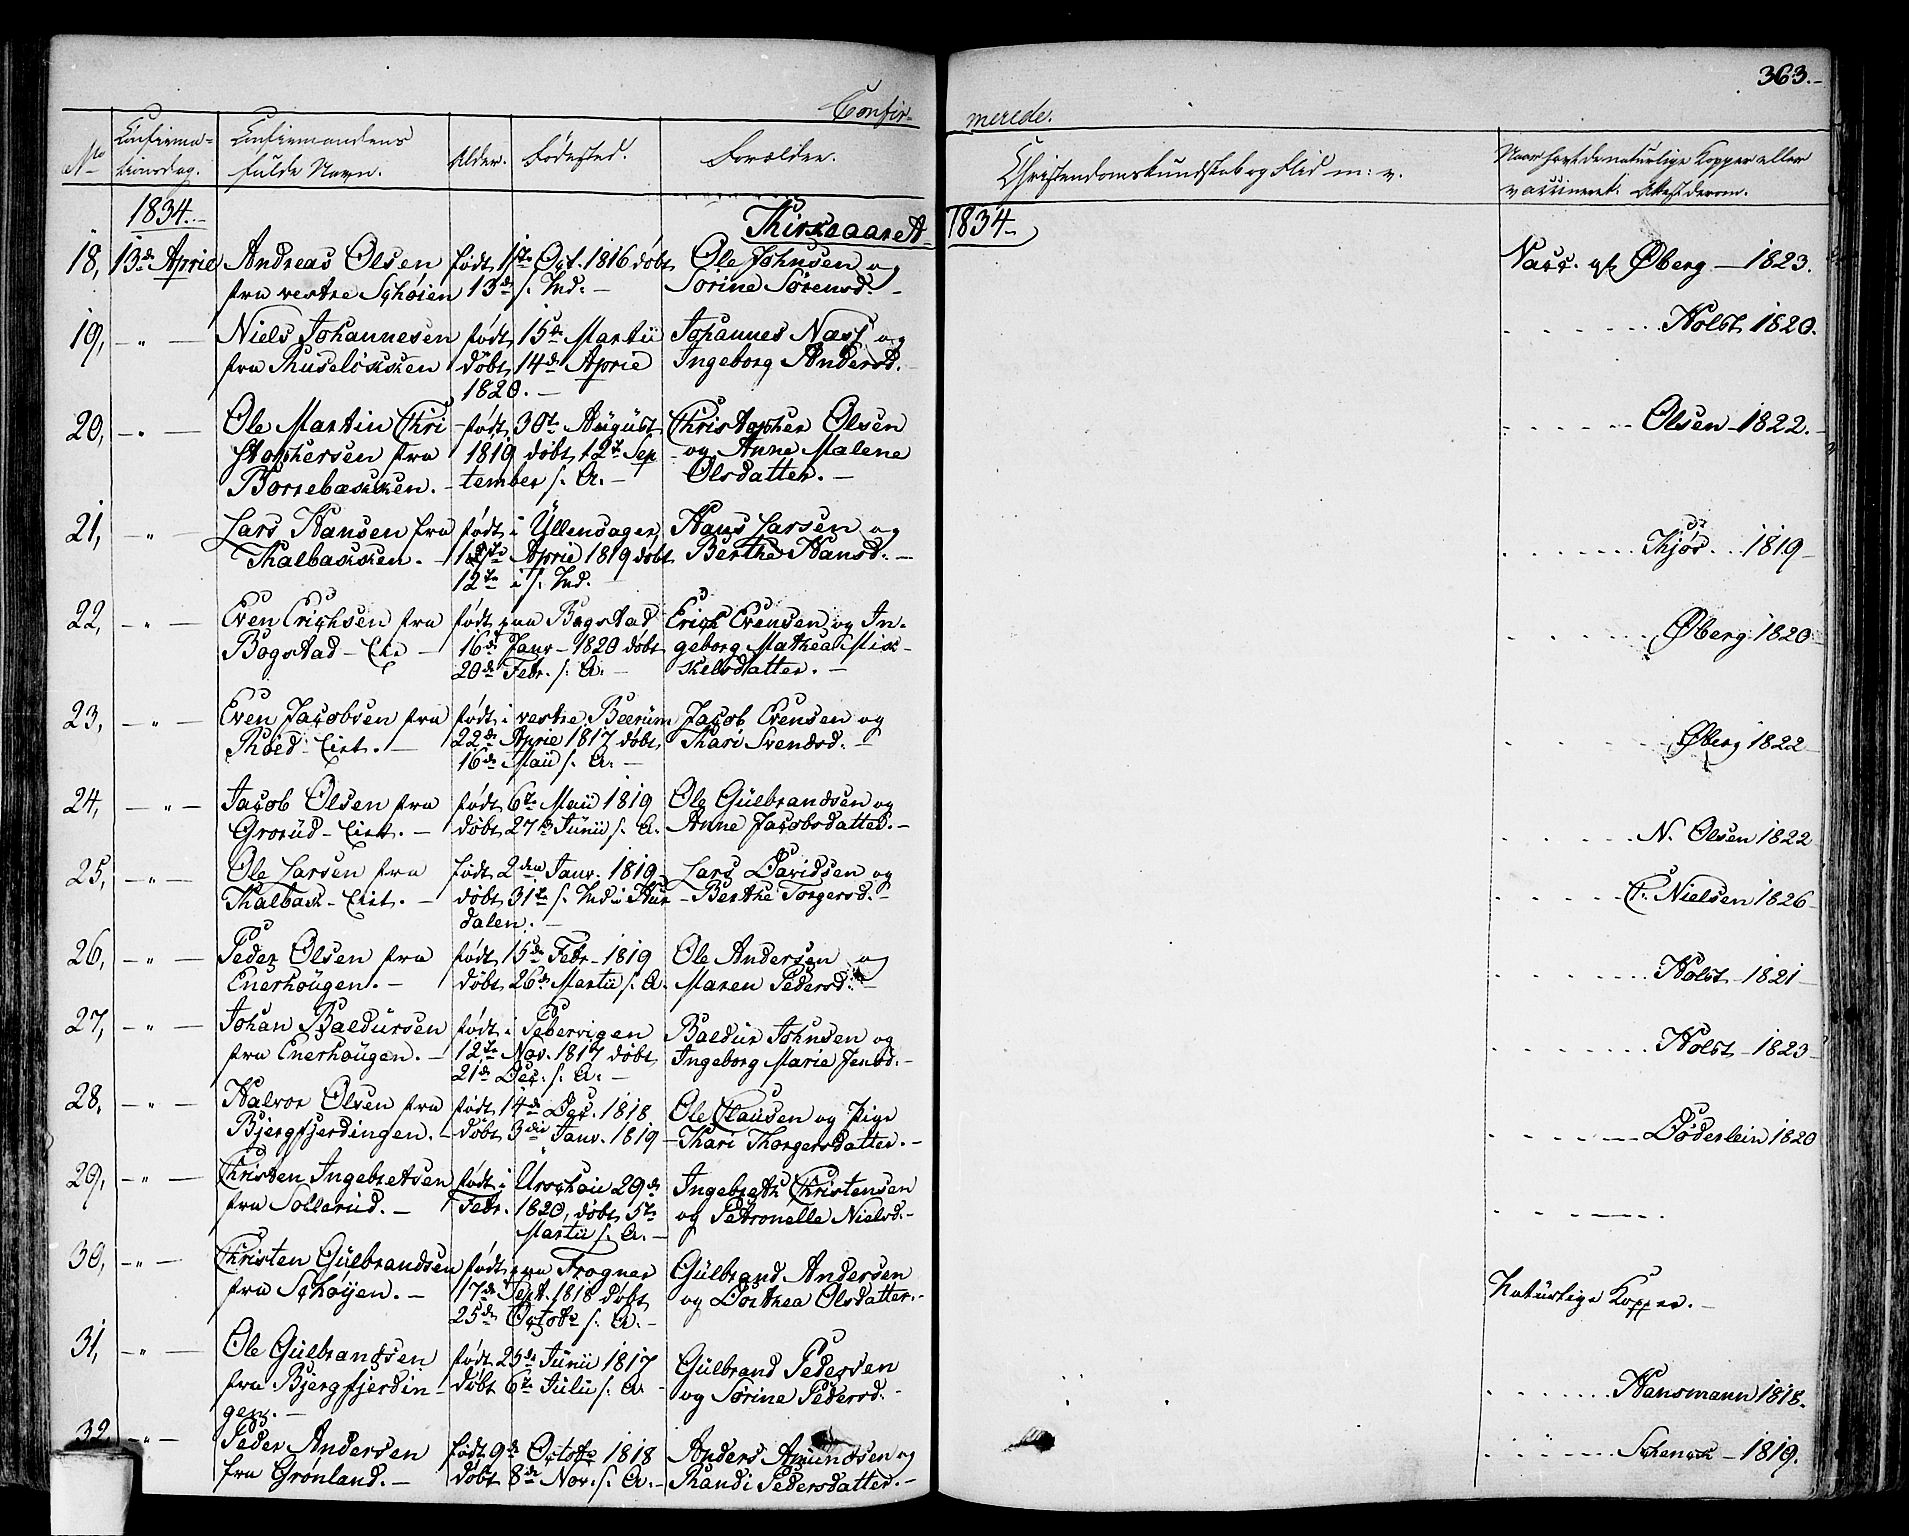 363.
Confir-
merede.
No
Confirma-
tionsdag.
Confirmandens
fulde Navn.
Alder.
Fødested.
Forældre.
Christendomskundskab og Flid m: v.
Naar havt de naturlige Kopper eller
vaccineret: Attest derom.
1834.
Kirkeaaret
1834
18, 13de April
Andreas Olsen
fra vestre Schøien
født 1ste Oct. 1816 døbt
13de s. Md.
Ole Johnsen og
Sorine Sørensd.
Vacc. af Øberg - 1823.
19, - " -
Niels Johannesen
fra Ruseløkken
født 15de Martii
døbt 14de April
1820.
Johannes Næss og
Ingeborg Andersd.
Holst 1820.
20, - " -
Ole Martin Chri
stophersen fra
Borrebækken.
født 30te August
1819 døbt 12te Sep
tember s. A.
Christopher Olsen
og Anne Malene
Olsdatter.
Olsen 1822.
21, - " -
Lars Hansen fra
Kalbakken.
født i Ullensager
April 1819 døbt
12te i s. Md.
Hans Larsen og
Berthe Hansd.
Kjøs 1819
22, - " -
Even Erichsen fra
Bogstad - Eie
født paa Bogstad
16de Janv. 1820 døbt
20de Febr. s. A.
Erich Evensen og In-
geborg Mathea Mik-
kelsdatter.
Øberg 1820
23, - " -
Even Jacobsen fra
Røed - Eiet.
født i vestre Beerum
22de April 1817 døbt
16de Maii s. A.
Jacob Evensen og
Kari Svendsd.
Øberg 1822
24, - " -
Jacob Olsen fra
Grorud - Eiet.
født 6te Maii 1819
døbt 27de Junii s. A.
Ole Gulbrandsen og
Anne Jacobsdatter.
N. Olsen 1822
25, - " -
Ole Larsen fra
Kalbak - Eiet.
født 2den Janv. 1819
døbt 31te s. Md i Hur
dalen.
Lars Davidsen og
Berthe Torgersd.
C. Nielsen 1826
26, - " -
Peder Olsen fra
Enerhougen.
født 15de Febr. 1819
døbt 26de Martii s. A.
Ole Andersen og
Maren Pedersd.
Holst 1821
27, - " -
Johan Baldursen
fra Enerhougen.
født i Pebervigen
12te Nov. 1817 døbt
21de Dec. s. A.
Baldur Johnsen og
Ingeborg Marie Jensd.
Holst 1823
28, - " -
Halvor Olsen fra
Bjergfjerdingen.
født 14de Dec. 1818
døbt 3die Janv. 1819
Ole Clausen og Pige
Kari Thorgersdatter.
Döderlein 1820
29, - " -
Christen Ingebretsen
fra Sollerud.
født i Urschou 29de
Febr. 1820, døbt 5te
Martii s. A.
Ingebreth Christensen
og Petronelle Nielsd.
30, - " -
Christen Gulbrandsen
fra Schøyen.
født paa Frogner
17de Sept. 1818 døbt
25de Octobr s. A.
Gulbrand Andersen
og Dorthea Olsdatter.
Naturlige Kopper.
31, - " -
Ole Gulbrandsen
fra Bjergfjerdin-
gen.
født 25de Junii 1817
døbt 6te Julii s. A.
Gulbrand Pedersen
og Sørine Pedersd.
Hansmann 1818.
32, - " -
Peder Andersen
fra Grønland.
født 9de Octobr 1818
døbt 8de Nov. s. A.
Anders Amundsen og
Randi Pedersdatter.
Schenck - 1819.